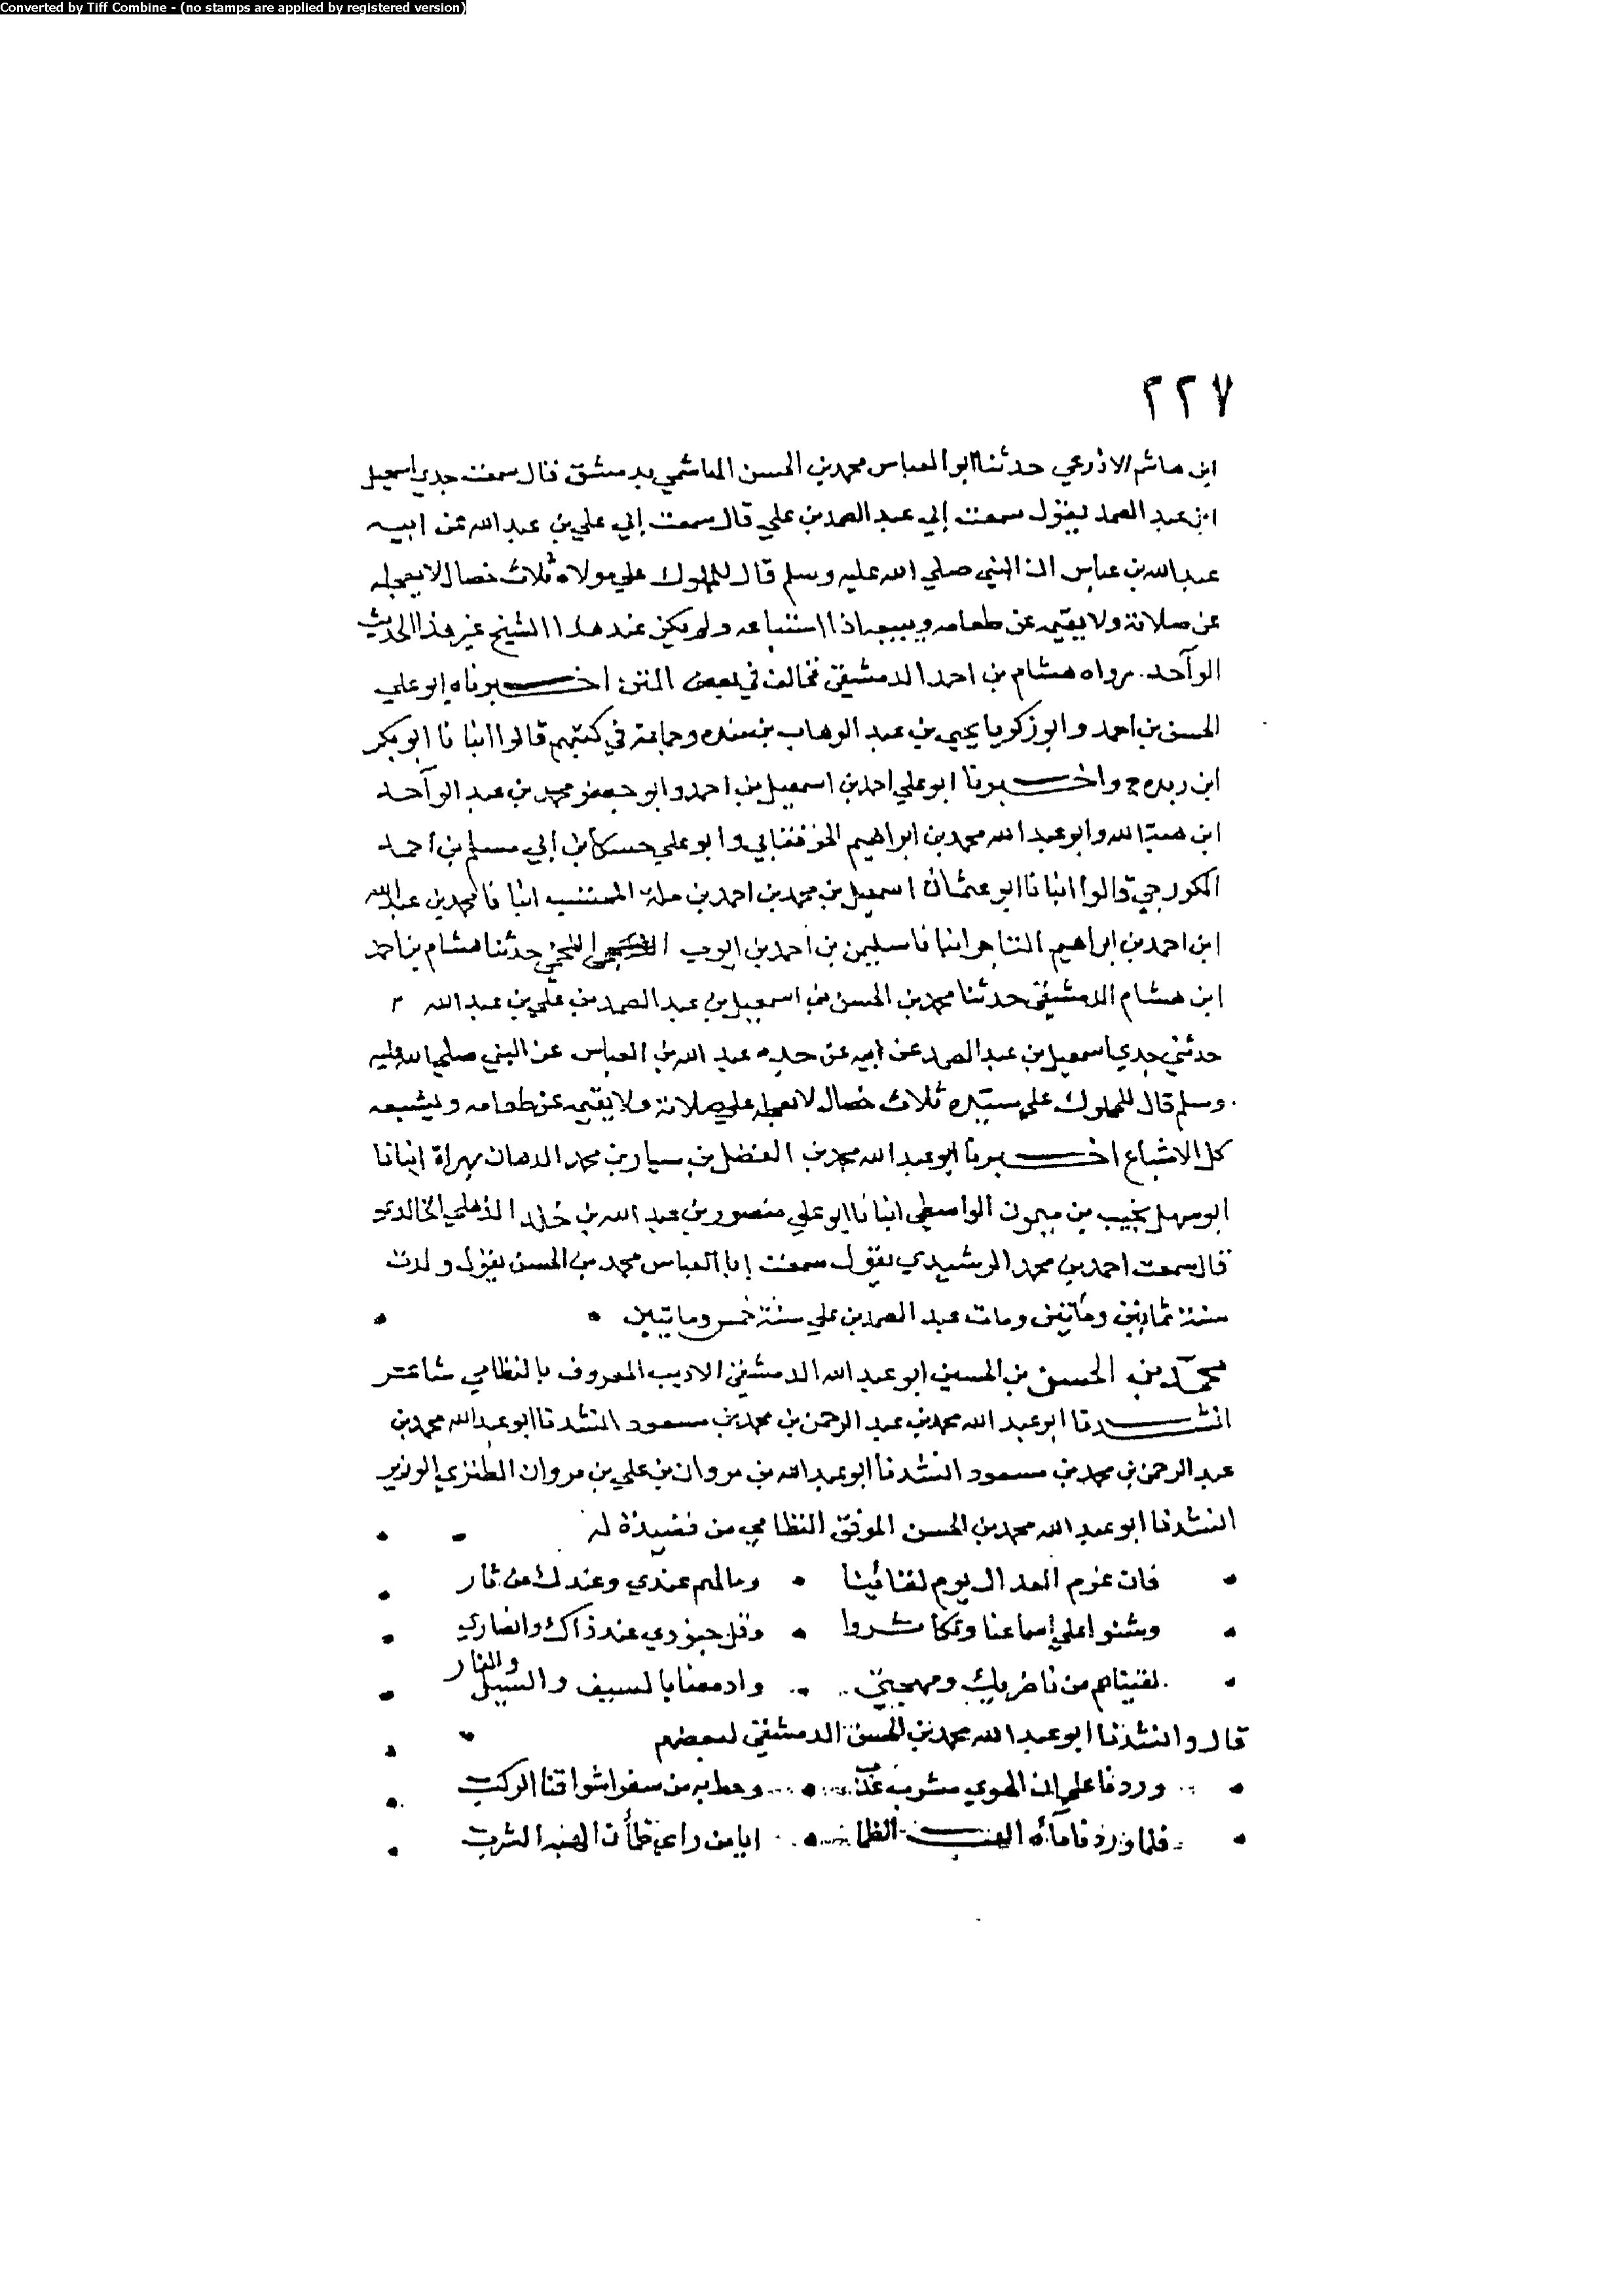 Converted by Tiff Combine - (no stamps are applied by registered version)
٢٢٧
ابن هاشم الاذرعي حدثنا ابو العباس محمد بن الحسن الهاشمي بدمشق قال سمعت جدي اسمعيل
ابن عبد الصمد يقول سمعت ابي عبد الصمد بن علي قال سمعت ابي علي بن عبد الله عن ابيه
عبد الله بن عباس ان النبي صلي الله عليه وسلم قال للمملوك علي مولاه ثلاث خصال لا يعجله
عن صلاته ولا يقيمه عن طعامه ويبيعه اذا استباعه ولم يكن عند هذا الشيخ غير هذا الحديث
الوآحد. رواه هشام بن احمد الدمشقي فخالف في بعض المتن اخبرناه ابو علي
الحسن بن احمد وابو زكريا يحيي بن عبد الوهاب بن منده وجماعة في كتبهم قالوا انبانا ابو بكر
ابن ريده ح واخبرنا ابو علي احمد بن اسمعيل بن احمد وابو جعفر محمد بن عبد الوآحد
ابن هبة الله وابو عبد الله محمد بن ابراهيم وابو علي بن ابي مسلم بن احمد
الكورجي قالوا انبانا ابو عثمان اسمعيل بن محمد بن احمد بن ملة المحتسب انبانا محمد بن عبد الله
ابن احمد بن ابراهيم التاجر انبانا سليمن بن احمد بن ايوب اللخمي حدثنا هشام بن احمد
ابن هشام الدمشقي حدثنا محمد بن الحسن بن اسمعيل بن عبد الصمد بن علي بن عبد الله
حدثني جدي اسمعيل بن عبد الصمد عن ابيه عن جده عبد الله بن العباس عن النبي صلي الله عليه
وسلم قال للمملوك علي سيده ثلاث خصال لا يعجله علي صلاته ولا يقيمه عن طعامه ويشبعه
كل الاشباع اخبرنا ابو عبد الله محمد بن الفضل بن سيار بن محمد الدهان بهراة انبانا
ابو سهل نجيب بن ميمون الواسطي انبانا ابو علي منصور بن عبد الله بن خالد الذهلي الخالدي
قال سمعت احمد بن محمد الرشيدي يقول سمعت ابا العباس محمد بن الحسن يقول ولدت
سنة ثمانين ومأتين ومات عبد الصمد بن علي سنة خمس ومايتين
محمد بن الحسن بن الحسين ابو عبد الله الدمشقي الاديب المعروف بالنظامي شاعر
انشدنا ابو عبد الله محمد بن عبد الرحمن بن محمد بن مسعود انشدنا ابو عبد الله محمد بن
عبد الرحمن بن محمد بن مسعود انشدنا ابو عبد الله بن مروان بن علي بن مروان الطنزي الوزير
انشدنا ابو عبد الله محمد بن الحسن الموفق النظامي من قصيدة له
فان عزم العذال يوم لقائينا • ومالهم عندي وعندك من ثار
وشنوا علي اسماعنا وتكاثروا • وقل جنودي عند ذاك وانصاري
لقيناهم من ناظريك ومهجتي • وادمعنا بالسيف والسيل والنار
قال وانشدنا ابو عبد الله محمد بن الحسن الدمشقي لبعضهم
وردنا علي ان الهوي مشرب عذب • وحط به من سفر اشواقنا الركب
فلما وردنا مآئه الظما • ايا من راي ظمأن الشرب